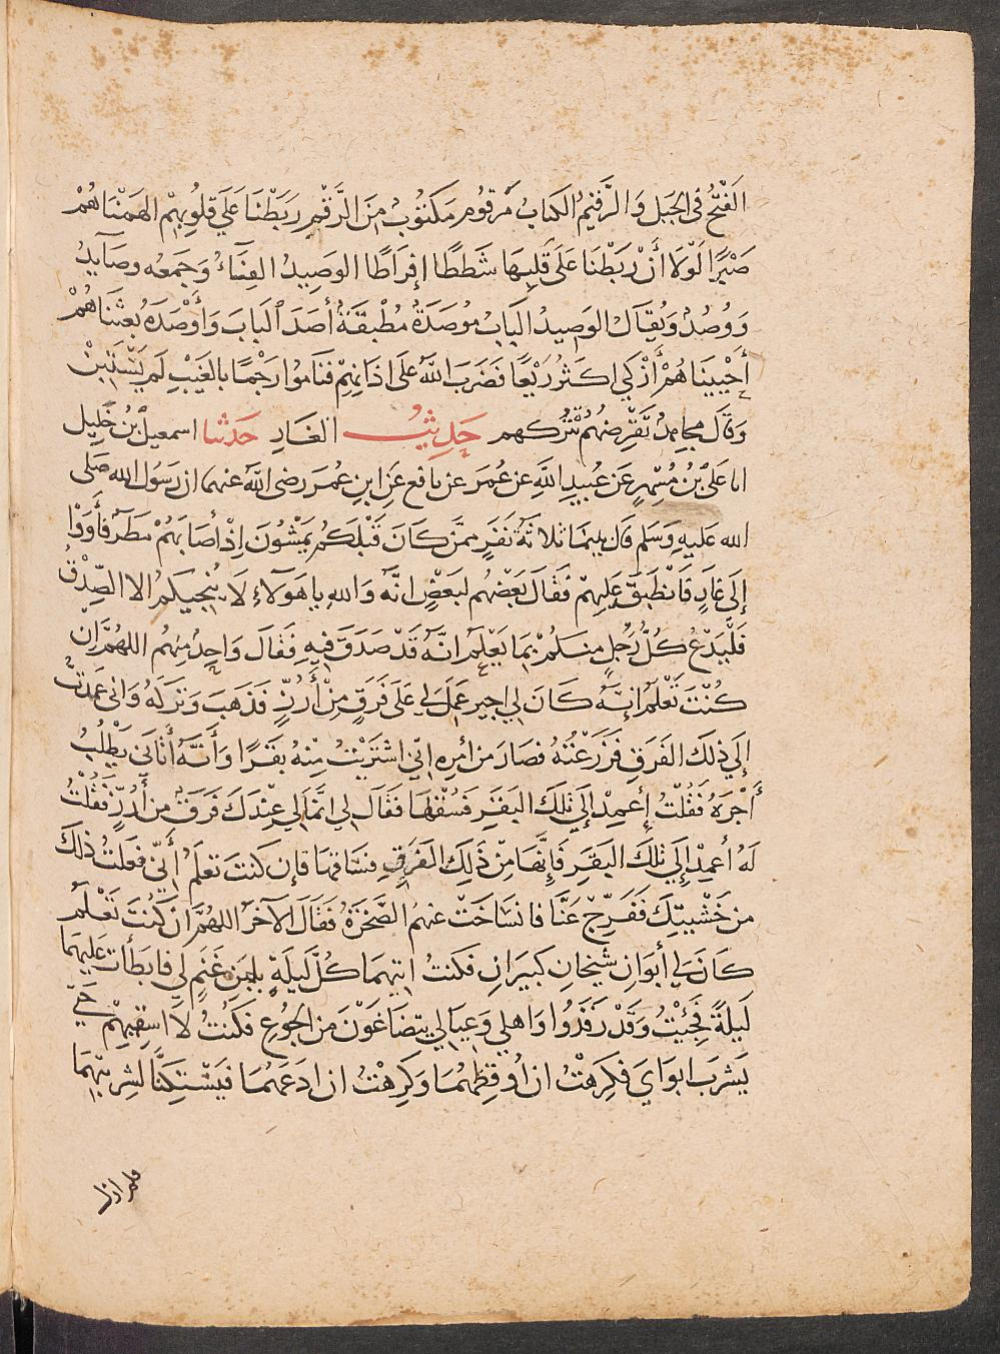 الفَتْحُ فى الجبل وَالرَّقيمُ الكتابُ مَرقومٌ مَكتوبٌ مِنَ الرَّقْمِ رَبَطْنَا عَلَى قلُوبِهِمْ الهَمْنَاهُمْ
صَبْرًا لَوْلَا أَنْ رَبَطْنَا عَلَى قَلبِهَا شَطَطًا إفرَاطًا الوَصِيدُ الفِنَاءُ وَجَمعُه وصَآيِدُ
وَوُصُدٌ وَيُقَالُ الوَصِيدُ البَابُ مُوصَدَةٌ مُطْبَقَةٌ أصَدَ الْبَابَ وَأَوْصَدَهُ بعثْنَاهُمْ
أحْيينَاهُمْ أَزْكى اكثَرُ رَيْعًا فَضَرَبَ اللهُ عَلَى اذَانِهِمْ فنَامُوا رَجْمًا بالغَيْبِ لَم يَسْتَبِنْ
وَقَالَ مجاهِدٌ تَقْرِضهُمْ تَتْرُكهم حَدِيثُ الغَارِ حَدثنا اسمعيل بْنُ خَلِيل
انا عَلىُّ بْنُ مُسْهِرٍ عَن عُبيدِ اللَّهِ عن عُمَرَ عن نافع عَنِ ابنِ عُمَرَ رضى اللهُ عنهما ان رَسُولَ الله صَلى
الله عَليهِ وَسَلم قَالَ بينمَا ثلاثَةُ نَفَرٍ مِمَّن كَانَ قَبْلَكُم يَمْشُونَ اِذْ أصَابَهُمْ مَطَرٌ فَأَوَوْا
إلَى غَارٍ فَانْطَبَقَ عَليهِمْ فَقَالَ بَعْضُهُم لبَعْضٍ انَّهُ وَاللهِ يا هَؤلَاءِ لَا يُنْجيكُمْ الا الصِّدْقُ
فَلْيَدْعُ كُلُّ رَجُلٍ مِنكُمْ بِمَا يَعْلَمُ انَّهُ قَدْ صَدَقَ فِيهِ فَقَالَ وَاحِدٌ مِنهُم اللهُمَّ إنْ
كُنْتَ تَعْلَمُ انَّهُ كَانَ لِى اجِير عَمِلَ لِى عَلَى فَرَقٍ مِنْ أَرُزٍّ فَذَهَبَ وَتَرَكَهُ وَانى عَمَدْتُ
إلَى ذلِكَ الفَرَقِ فَزَرَعْتُهُ فصَارَ مِن امْرِهِ انّى اشْتَرَيْتُ مِنْهُ بَقَرًا وَأَنَّهُ أَتَانى يَطْلُبُ
أجْرَهُ فَقُلْتُ إعْمِدْ إلَى تِلكَ البَقَرِ فَسُقْهَا فَقَالَ لِى انَّمَا لِى عِنْدَكَ فَرَقٌ مِن أَرُزٍّ فَقُلْتُ
لَهُ أعمِدْ إلَى تلكَ البَقَرِ فَإنَّهَا مِنْ ذَلِكَ الفَرَقِ فسَاقهَا فإن كنتَ تعلَمُ أَنّى فعَلتُ ذلكَ
مِن خَشْيَتِكَ فَفَرِّجْ عَنَّا فانسَاخَتْ عنهمُ الصَّخْرَةُ فَقَالَ الآخَرُ اللهُمَّ ان كُنتَ تَعْلَم
كَانَ لِى أَبَوَانِ شَيْخَانِ كبيرَانِ فكنتُ اتِيهِمَا كُلَّ لَيلَةٍ بلبَنِ غَنَمٍ لِى فابطَأتُ عَلَيهِمَا
لَيلَةً فَجِئْتُ وَقَدْ رَقَدُوا وَاهلِى وَعيَالِى يتضَاغَوْنَ مِن الجُوعِ فكُنْتُ لَا اسْقِيهِمْ حَتّى
يَشرَبَ ابوَاىَ فكَرِهْتُ ان أوقِظهُمَا وَكَرِهْتُ ان ادَعَهُمَا فيَسْتَكِنَّا لشَربَتِهِمَا
فلم ازل